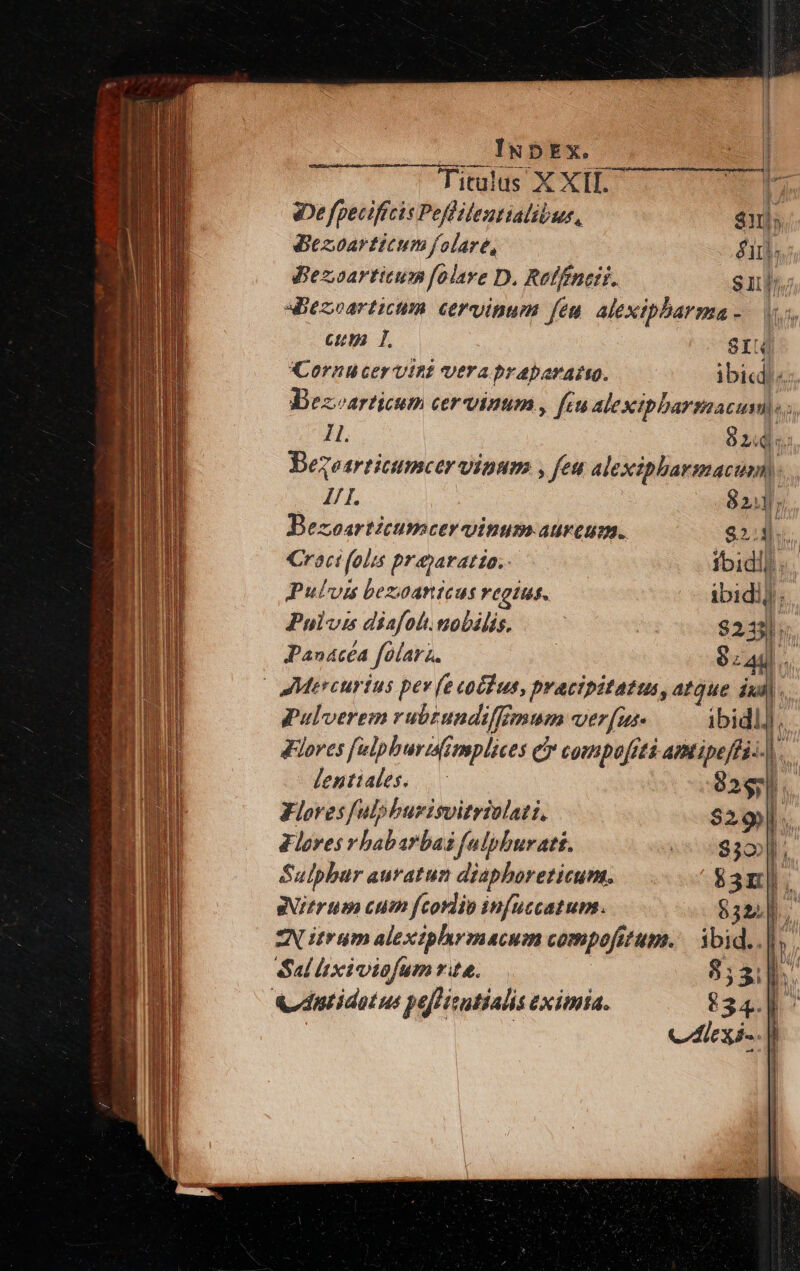 INDEX.
Titulus XXII.
De specificis Pestilentialibus,
Bezoarticum solare,
Bezoarticum solare D. Rolfincii.
Bezoarticum cervinum seu alexipharma-
cum I.
Cornu cervini vera præparatio. ibid
Bezoarticum cervinum, seu alexipharmacum
II.
Bezoarticum cervinum, seu alexipharmacum
III.
Bezoarticum cervinum aureum.
Croci solis præparatio. ibid
Pulvis bezoanicus regius. ibid
Pulvis diasolt. nobilis. 823
Panacea solaris. 824
Mercurius per se coctus, præcipitatus, atque in
Pulverem rubrundissimum versus. ibid
Flores sulphuris simplices & compositi antipesti-
lentiales.
Flores sulphuris vitriolati. 829
Flores rhabarbai sulphurati. 830
Sulphur auratun diaphoreticum. 831
Nitrum cum scordio insuccatum. 832
Nitrum alexipharmacum compositum. ibid.
Sal lixiviosum rite. 833
Antidotus pestilentialis eximia. 834.
Alexi-